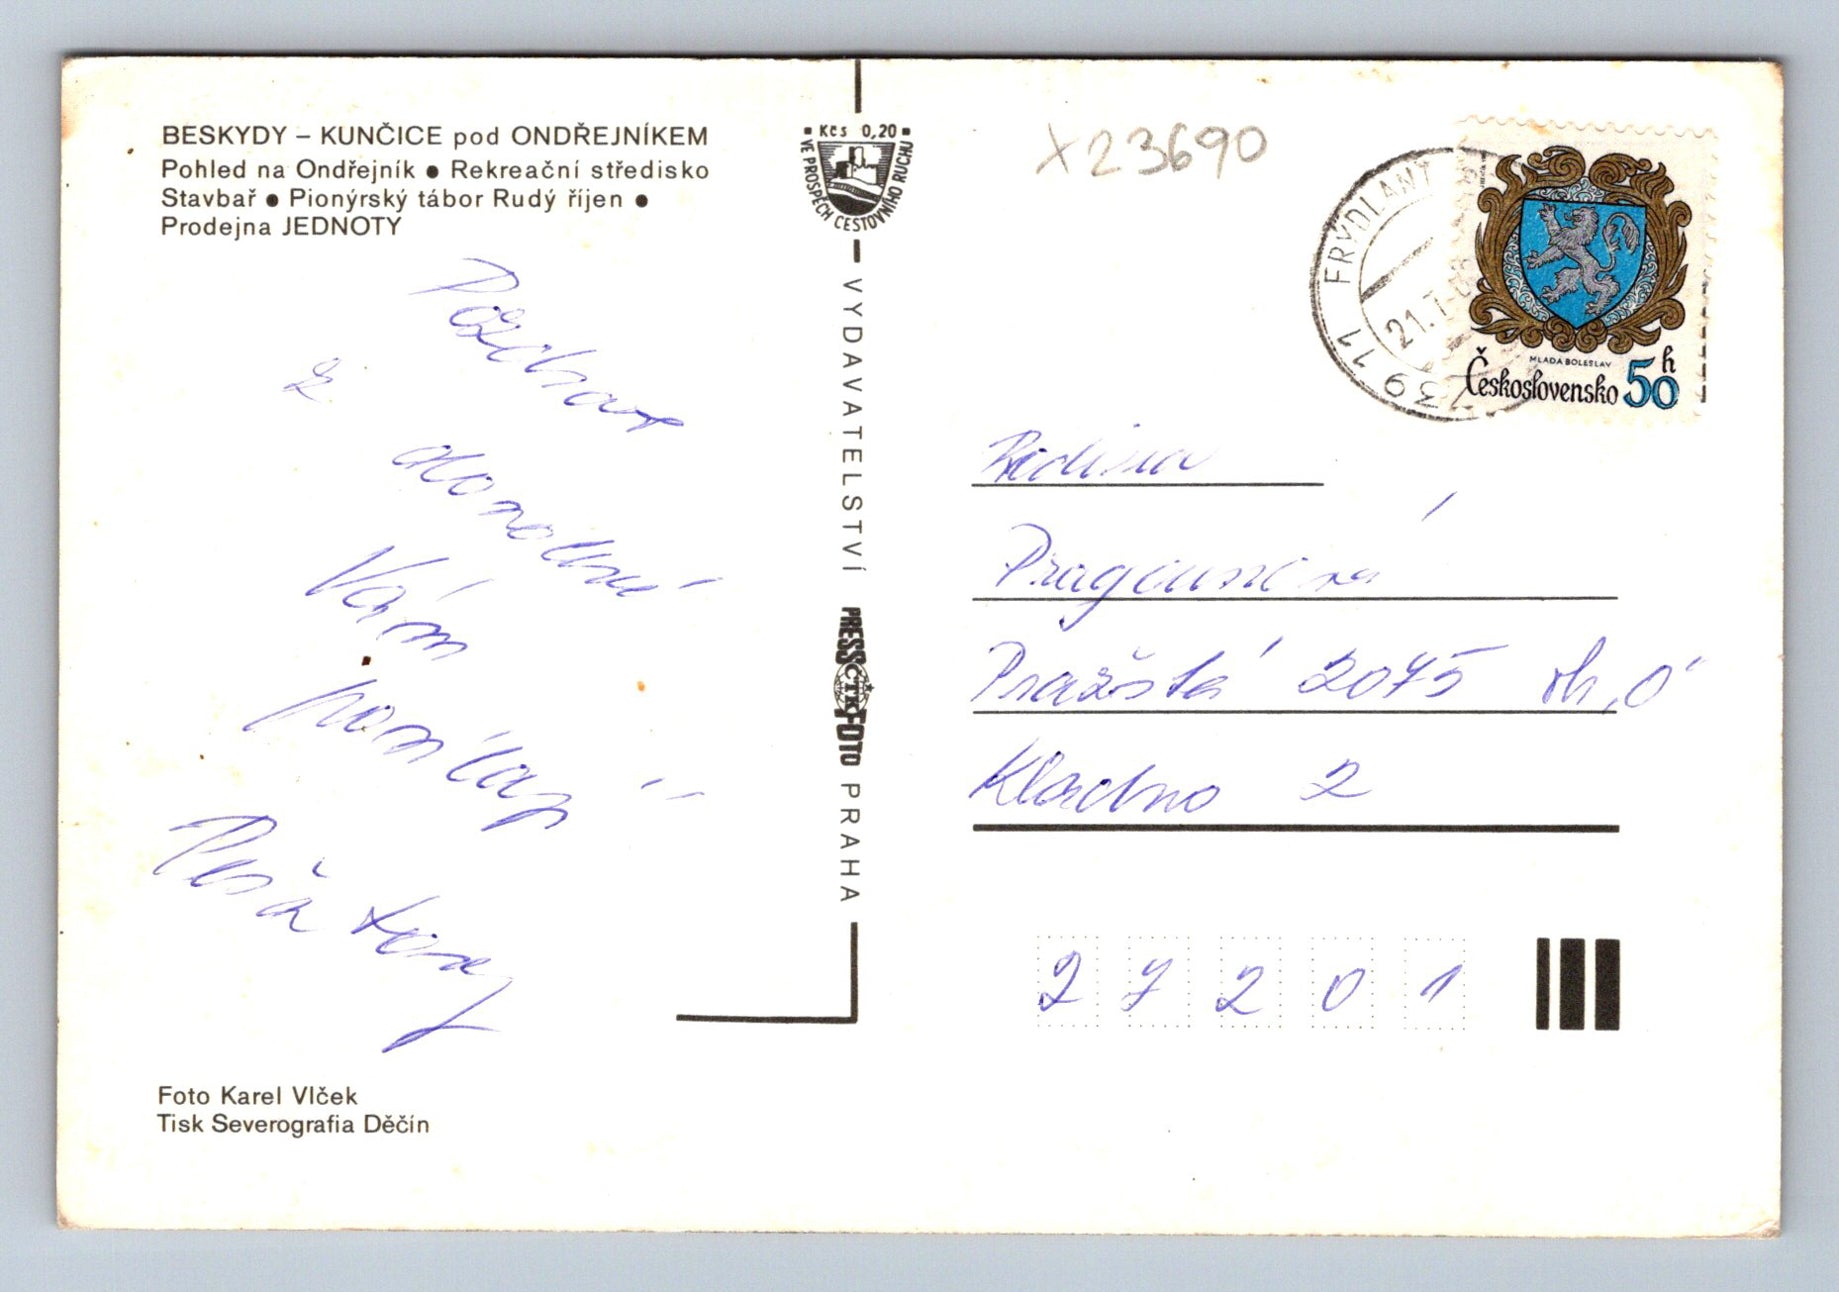 BESKYDY – KUNČICE pod ONDŘEJNÍKEM
Pohled na Ondřejník ● Rekreační středisko
Stavbař ● Pionýrský tábor Rudý říjen ●
Prodejna JEDNOTY
Kčs 0,20
VE PROSPĚCH CESTOVNÍHO RUCHU
X23690
739 11 FRÝDLANT
21.7
MLADÁ BOLESLAV
Československo 50 h
Pozdrav
z dovolené
Vám
posílají
VYDAVATELSTVÍ PRESSFOTO PRAHA
ČTK
Rodina
Pražská 2075
Kladno 2
27201
Foto Karel Vlček
Tisk Severografia Děčín